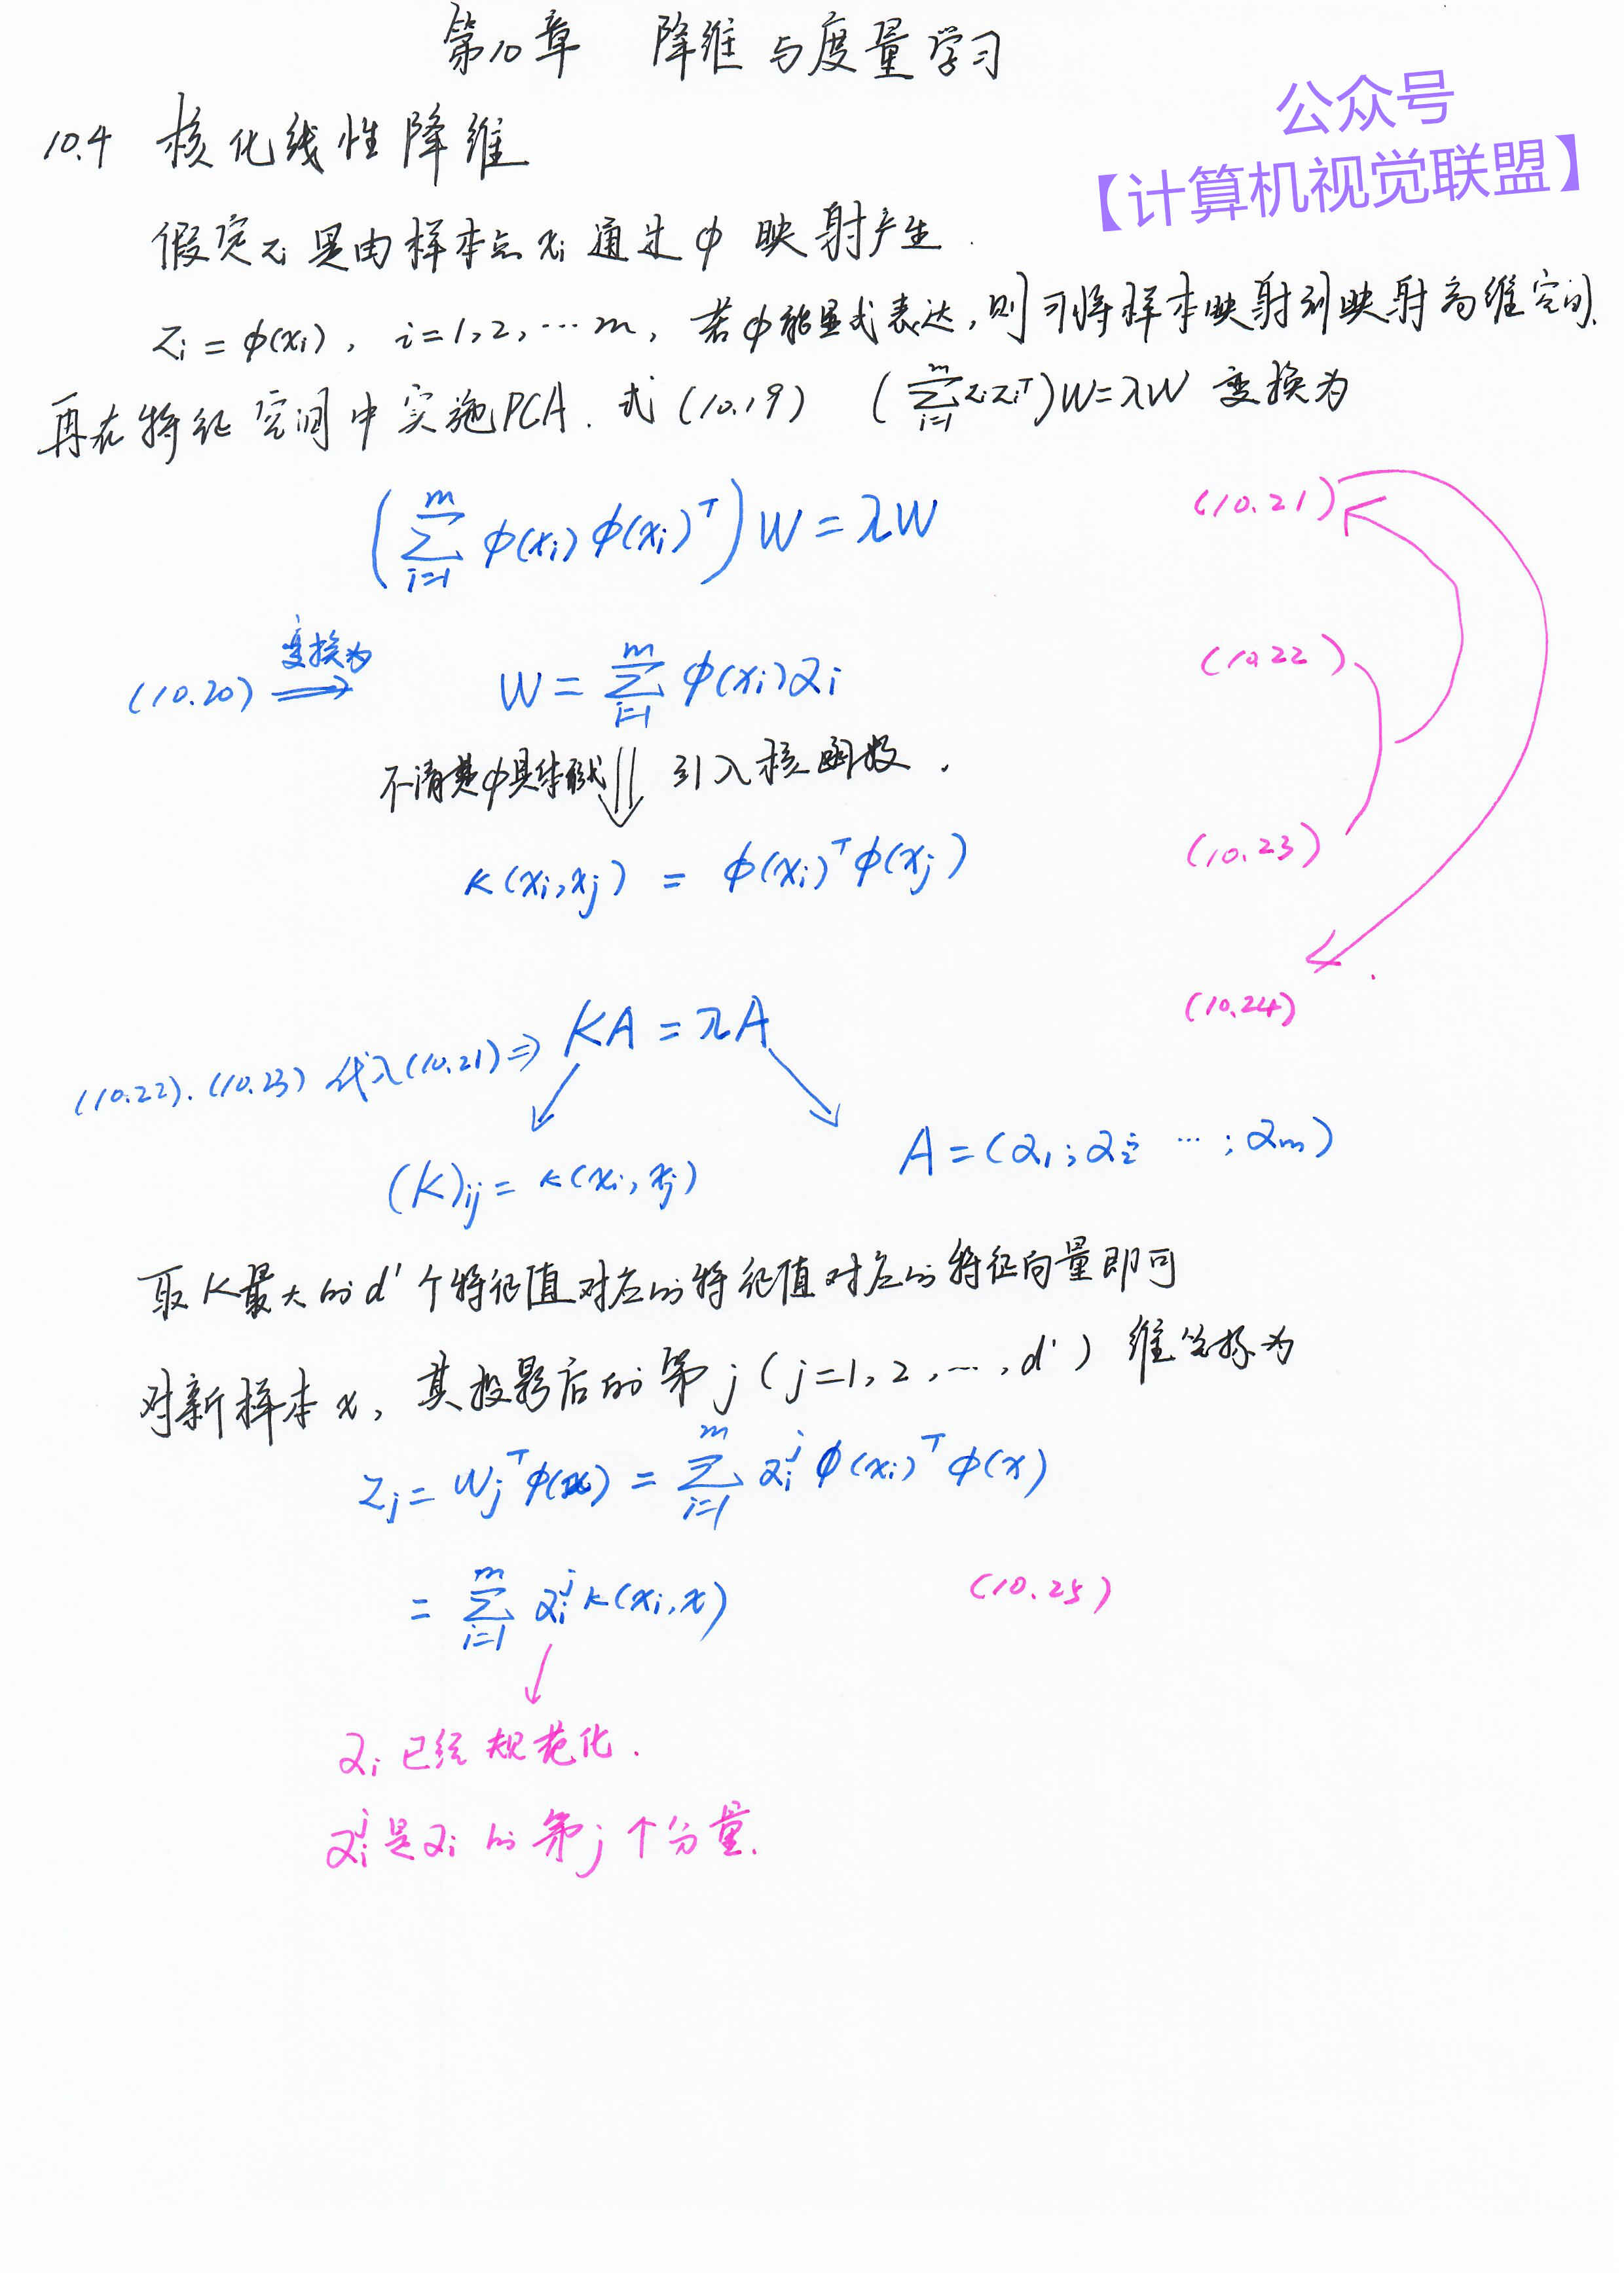 第10章 降维与度量学习
公众号
【计算机视觉联盟】
10.4 核化线性降维
假定zi是由样本点xi通过φ映射产生.
zi = φ(xi), i=1,2,…m, 若φ能显式表达,则可将样本映射到映射高维空间.
再在特征空间中实施PCA. 式(10.19) (∑_{i=1}^{m} zi zi^T)W=λW 变换为
(∑_{i=1}^{m} φ(xi)φ(xi)^T)W = λW (10.21)
(10.20) 变换为⟹ W = ∑_{i=1}^{m} φ(xi)αi (10.22)
不清楚φ具体形式 ⇓ 引入核函数.
κ(xi,xj) = φ(xi)^T φ(xj) (10.23)
(10.24)
(10.22).(10.23)代入(10.21)⇒ KA = λA
(K)ij = κ(xi, xj) A=(α1;α2; …;αm)
取K最大的d'个特征值对应的特征值对应的特征向量即可
对新样本x, 其投影后的第j(j=1,2,…,d')维坐标为
zj = wj^T φ(x) = ∑_{i=1}^{m} αi^j φ(xi)^T φ(x)
= ∑_{i=1}^{m} αi^j κ(xi,x) (10.25)
αi已经规范化.
αi^j是αi的第j个分量.